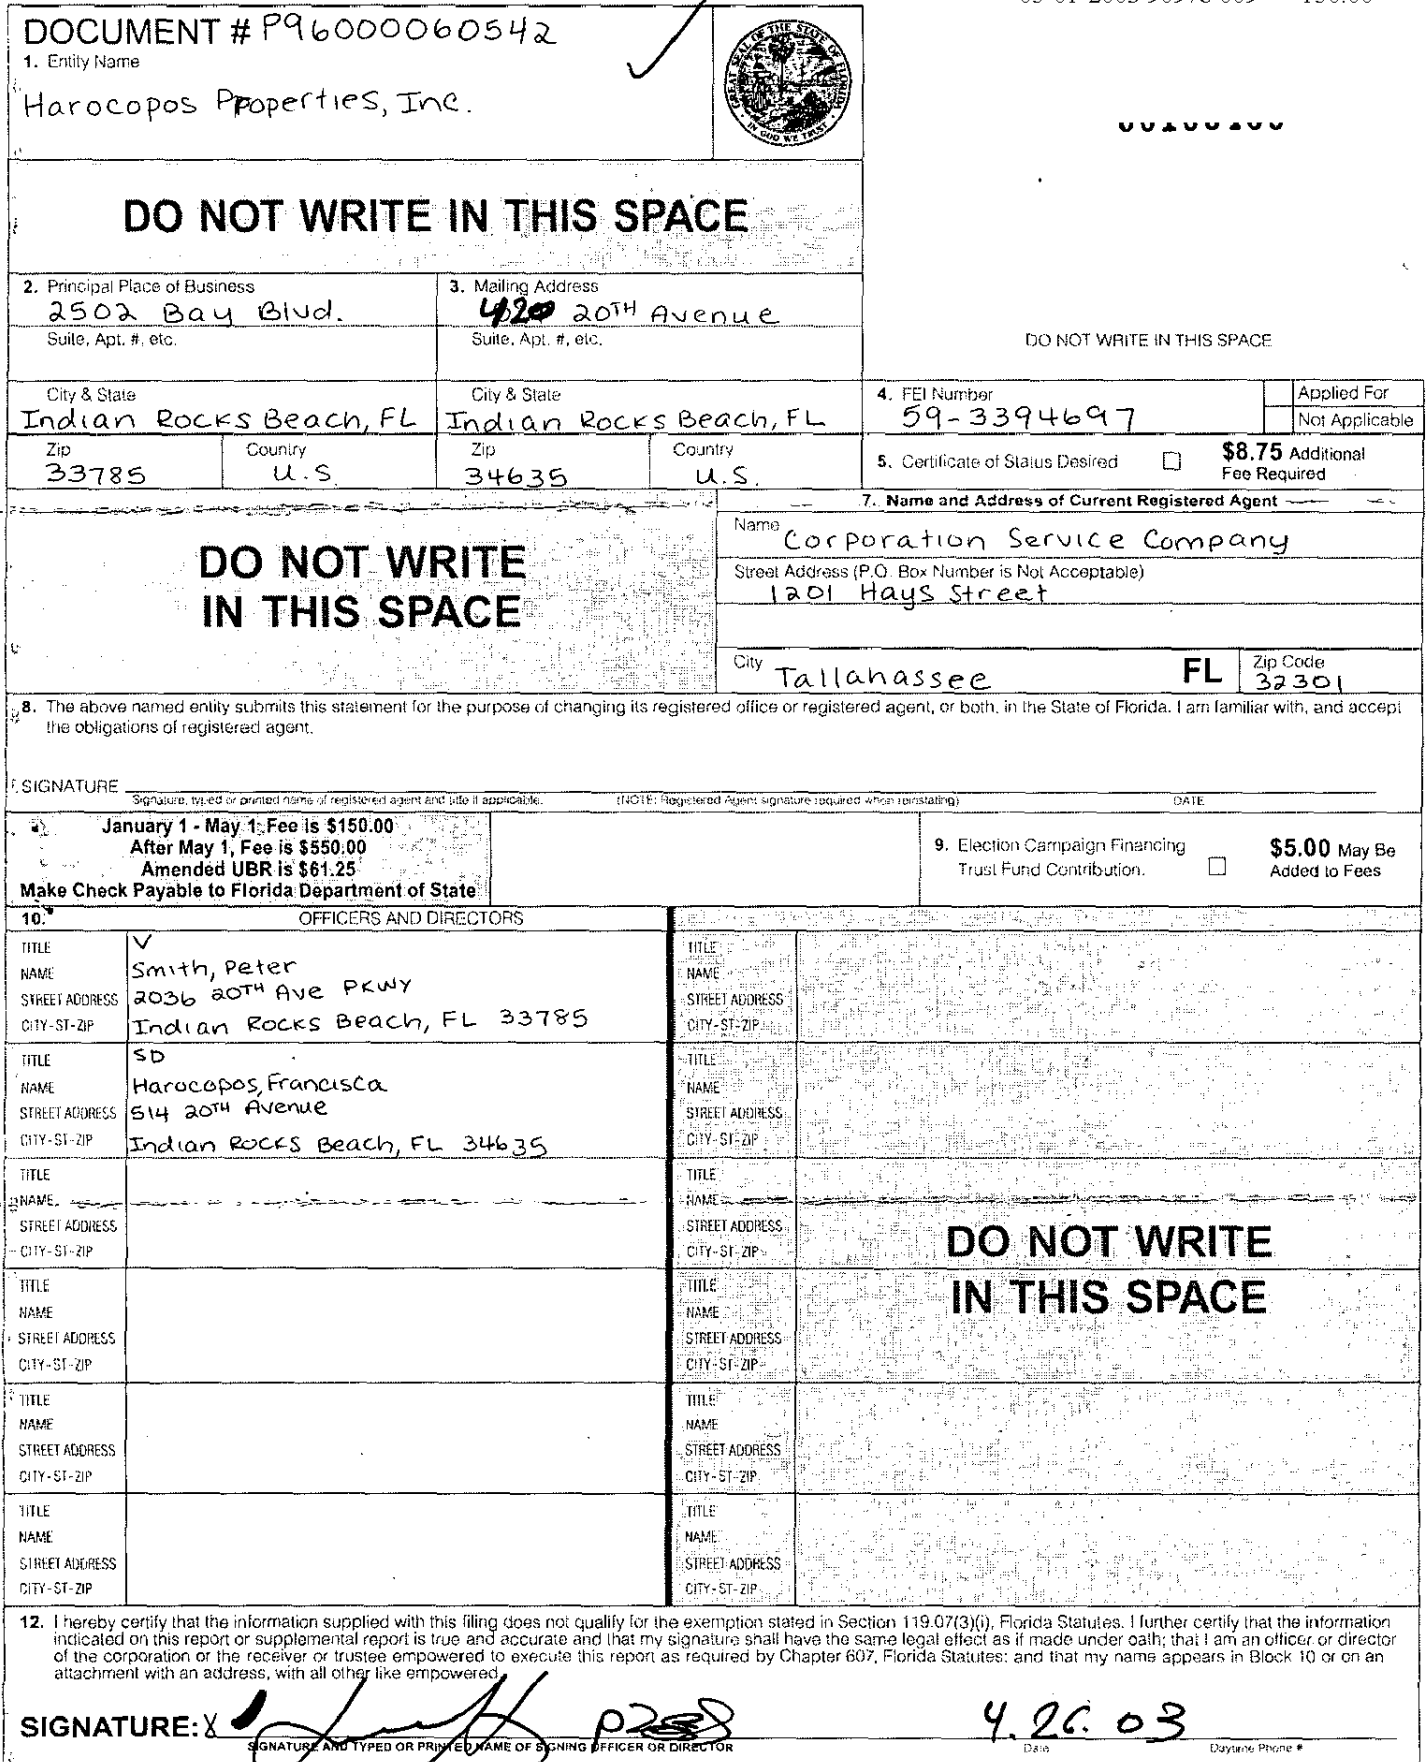 DOCUMENT # P96000060542
1. Entity Name
Harocopos Properties, Inc.
GREAT SEAL OF THE STATE OF FLORIDA
IN GOD WE TRUST
DO NOT WRITE IN THIS SPACE
2. Principal Place of Business
2502 Bay Blvd.
Suite, Apt. #, etc.
3. Mailing Address
420 20TH Avenue
Suite, Apt. #, etc.
DO NOT WRITE IN THIS SPACE
City & State
Indian Rocks Beach, FL
City & State
Indian Rocks Beach, FL
4. FEI Number
59-3394697
Applied For
Not Applicable
Zip
33785
Country
U.S.
Zip
34635
Country
U.S.
5. Certificate of Status Desired
$8.75 Additional
Fee Required
DO NOT WRITE
IN THIS SPACE
7. Name and Address of Current Registered Agent
Name
Corporation Service Company
Street Address (P.O. Box Number is Not Acceptable)
1201 Hays Street
City Tallahassee FL
Zip Code
32301
8. The above named entity submits this statement for the purpose of changing its registered office or registered agent, or both, in the State of Florida. I am familiar with, and accept
the obligations of registered agent.
SIGNATURE
Signature, typed or printed name of registered agent and title if applicable. (NOTE: Registered Agent signature required when reinstating) DATE
January 1 - May 1, Fee is $150.00
After May 1, Fee is $550.00
Amended UBR is $61.25
Make Check Payable to Florida Department of State
9. Election Campaign Financing
Trust Fund Contribution.
$5.00 May Be
Added to Fees
10. OFFICERS AND DIRECTORS
TITLE V
NAME Smith, Peter
STREET ADDRESS 2036 20TH Ave PKWY
CITY-ST-ZIP Indian Rocks Beach, FL 33785
TITLE
NAME
STREET ADDRESS
CITY-ST-ZIP
TITLE SD
NAME Harocopos, Francisca
STREET ADDRESS 514 20TH Avenue
CITY-ST-ZIP Indian Rocks Beach, FL 34635
TITLE
NAME
STREET ADDRESS
CITY-ST-ZIP
TITLE
NAME
STREET ADDRESS
CITY-ST-ZIP
TITLE
NAME
STREET ADDRESS
CITY-ST-ZIP
DO NOT WRITE
IN THIS SPACE
TITLE
NAME
STREET ADDRESS
CITY-ST-ZIP
TITLE
NAME
STREET ADDRESS
CITY-ST-ZIP
TITLE
NAME
STREET ADDRESS
CITY-ST-ZIP
TITLE
NAME
STREET ADDRESS
CITY-ST-ZIP
TITLE
NAME
STREET ADDRESS
CITY-ST-ZIP
TITLE
NAME
STREET ADDRESS
CITY-ST-ZIP
12. I hereby certify that the information supplied with this filing does not qualify for the exemption stated in Section 119.07(3)(i), Florida Statutes. I further certify that the information
indicated on this report or supplemental report is true and accurate and that my signature shall have the same legal effect as if made under oath; that I am an officer or director
of the corporation or the receiver or trustee empowered to execute this report as required by Chapter 607, Florida Statutes; and that my name appears in Block 10 or on an
attachment with an address, with all other like empowered.
SIGNATURE: X 4.26.03
SIGNATURE AND TYPED OR PRINTED NAME OF SIGNING OFFICER OR DIRECTOR Date Daytime Phone #